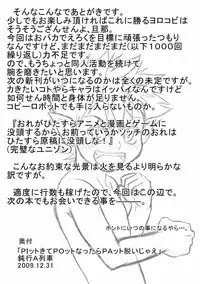 そんなこんなであとがきです。
少しでもお楽しみ頂ければこれに勝るヨロコビは
そうそうございませんよ、旦那。
今回はおバカでえろくを目標に頑張ったつもり
なんですけど、まだまだまだまだ(以下1000回
繰り返し)力不足です。
ので、もうちょっと同人活動続けて
腕を磨きたいと思います。
次の新刊がいつになるのかは全くの未定ですが。
カきたいコトやらキャラはイッパイなんですけど
如何せん時間と身体が足りません。
コピーロボット でも手に入らないものか。
『おれがひたすらアニメと漫画とゲームに
没頭するから、お前っていうかソッチのおれは
ひたすら原稿に没頭しな!』
(完璧なユニゾン)
こんなお約束な光景は火を見るより明らかな
訳ですが。
適度に行数も稼げたので、今回はこの辺で。
次の本でもお会いできる事を…
ホントにいつの事になるやら…。
奥付
「PIットきてPOットなったらPAット脱いじゃえ」
鈍行A列車
2009.12.31